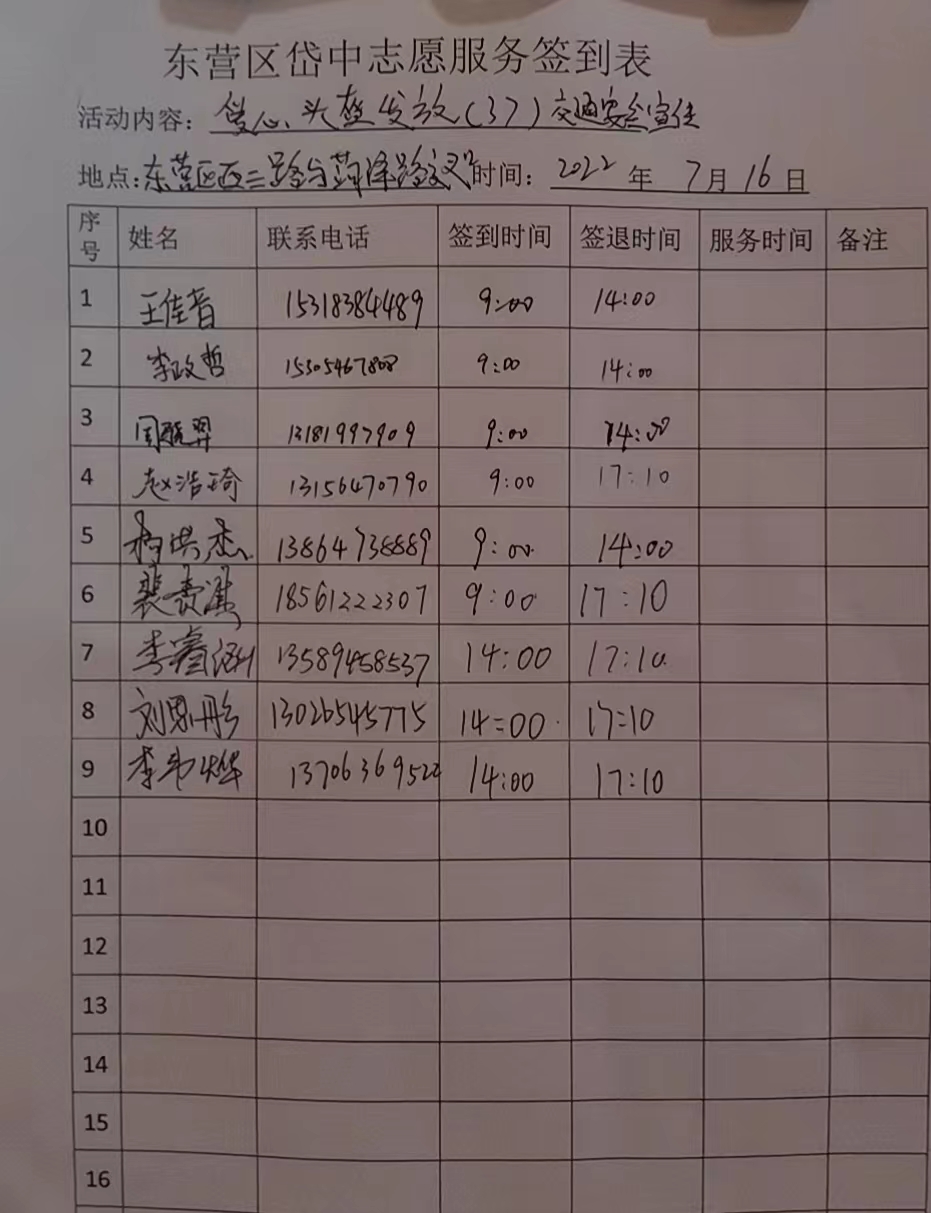 东营区岱中志愿服务签到表
活动内容：爱心头盔发放(37)交通安全宣传
地点：东营区西二路与菏泽路交叉口 时间：2022年 7月 16日
序号 姓名 联系电话 签到时间 签退时间 服务时间 备注
1 王佳音 15318384489 9:00 14:00
2 李政哲 15305467808 9:00 14:00
3 13181997909 9:00 14:00
4 赵浩琦 13156470790 9:00 17:10
5 13864738889 9:00 14:00
6 18561222307 9:00 17:10
7 李睿涵 13589458537 14:00 17:10
8 刘思彤 13026545775 14:00 17:10
9 李韦烨 13706369522 14:00 17:10
10
11
12
13
14
15
16